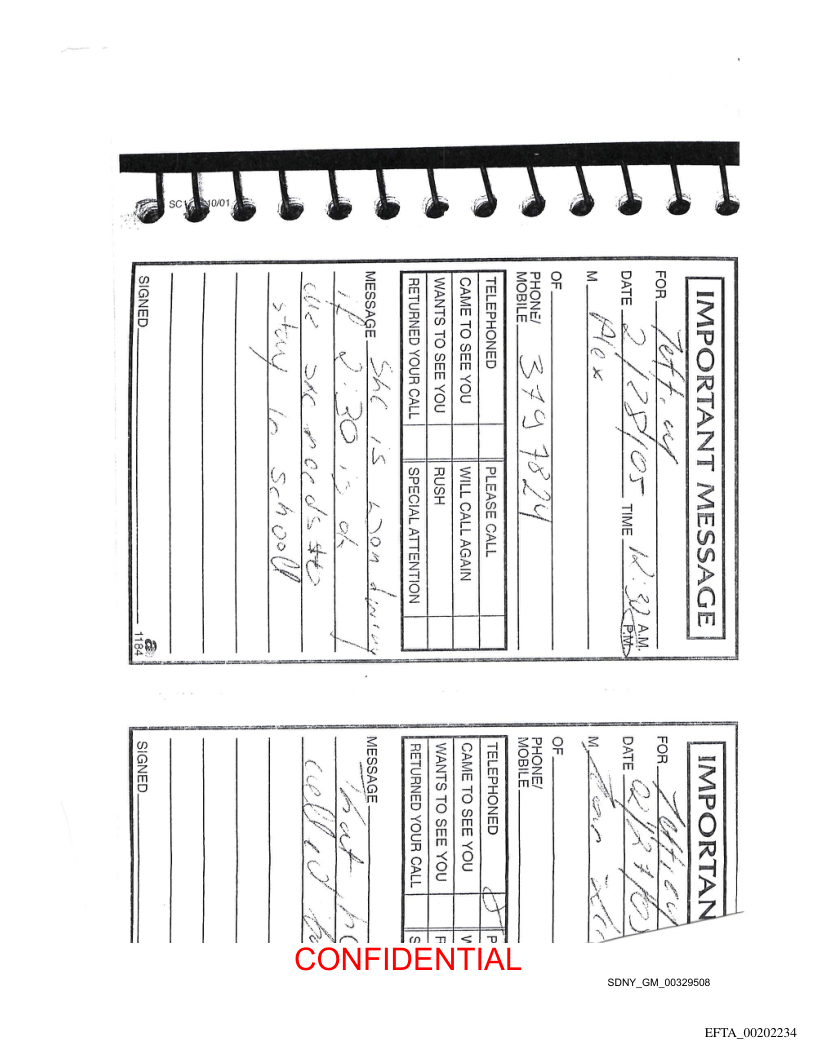 SC1 10/01
IMPORTANT MESSAGE
FOR Jeffrey
DATE 2/28/05 TIME 12:30 A.M. P.M.
M Alex
OF
PHONE/
MOBILE 3797824
TELEPHONED PLEASE CALL
CAME TO SEE YOU WILL CALL AGAIN
WANTS TO SEE YOU RUSH
RETURNED YOUR CALL SPECIAL ATTENTION
MESSAGE She is wondering
if 2:30 is ok
she needs to
stay in school
SIGNED
1184
IMPORTAN
FOR Jeffrey
DATE 02/27/0
M
OF
PHONE/
MOBILE
TELEPHONED P
CAME TO SEE YOU W
WANTS TO SEE YOU R
RETURNED YOUR CALL S
MESSAGE that he
called
SIGNED
CONFIDENTIAL
SDNY_GM_00329508
EFTA_00202234